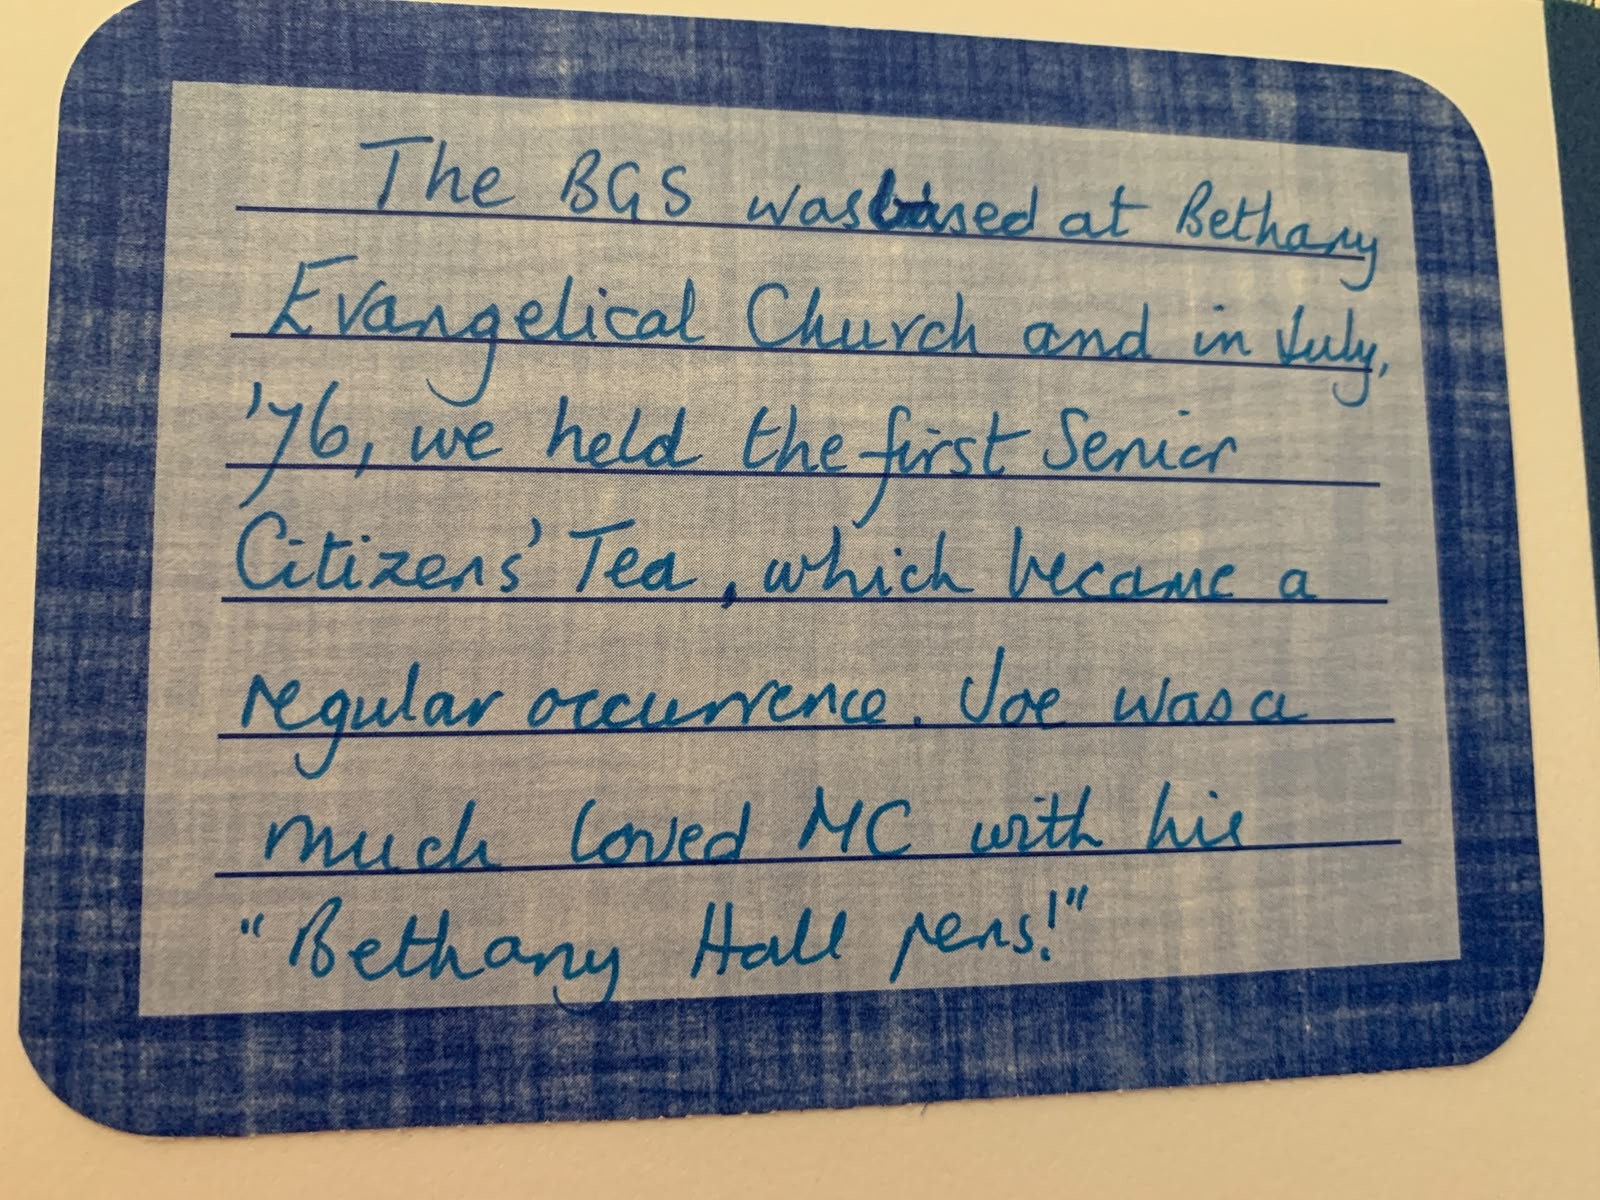 The BGS was based at Bethany
Evangelical Church and in July,
'76, we held the first Senior
Citizens' Tea, which became a
regular occurrence. Joe was a
much loved MC with his
"Bethany Hall pens!"